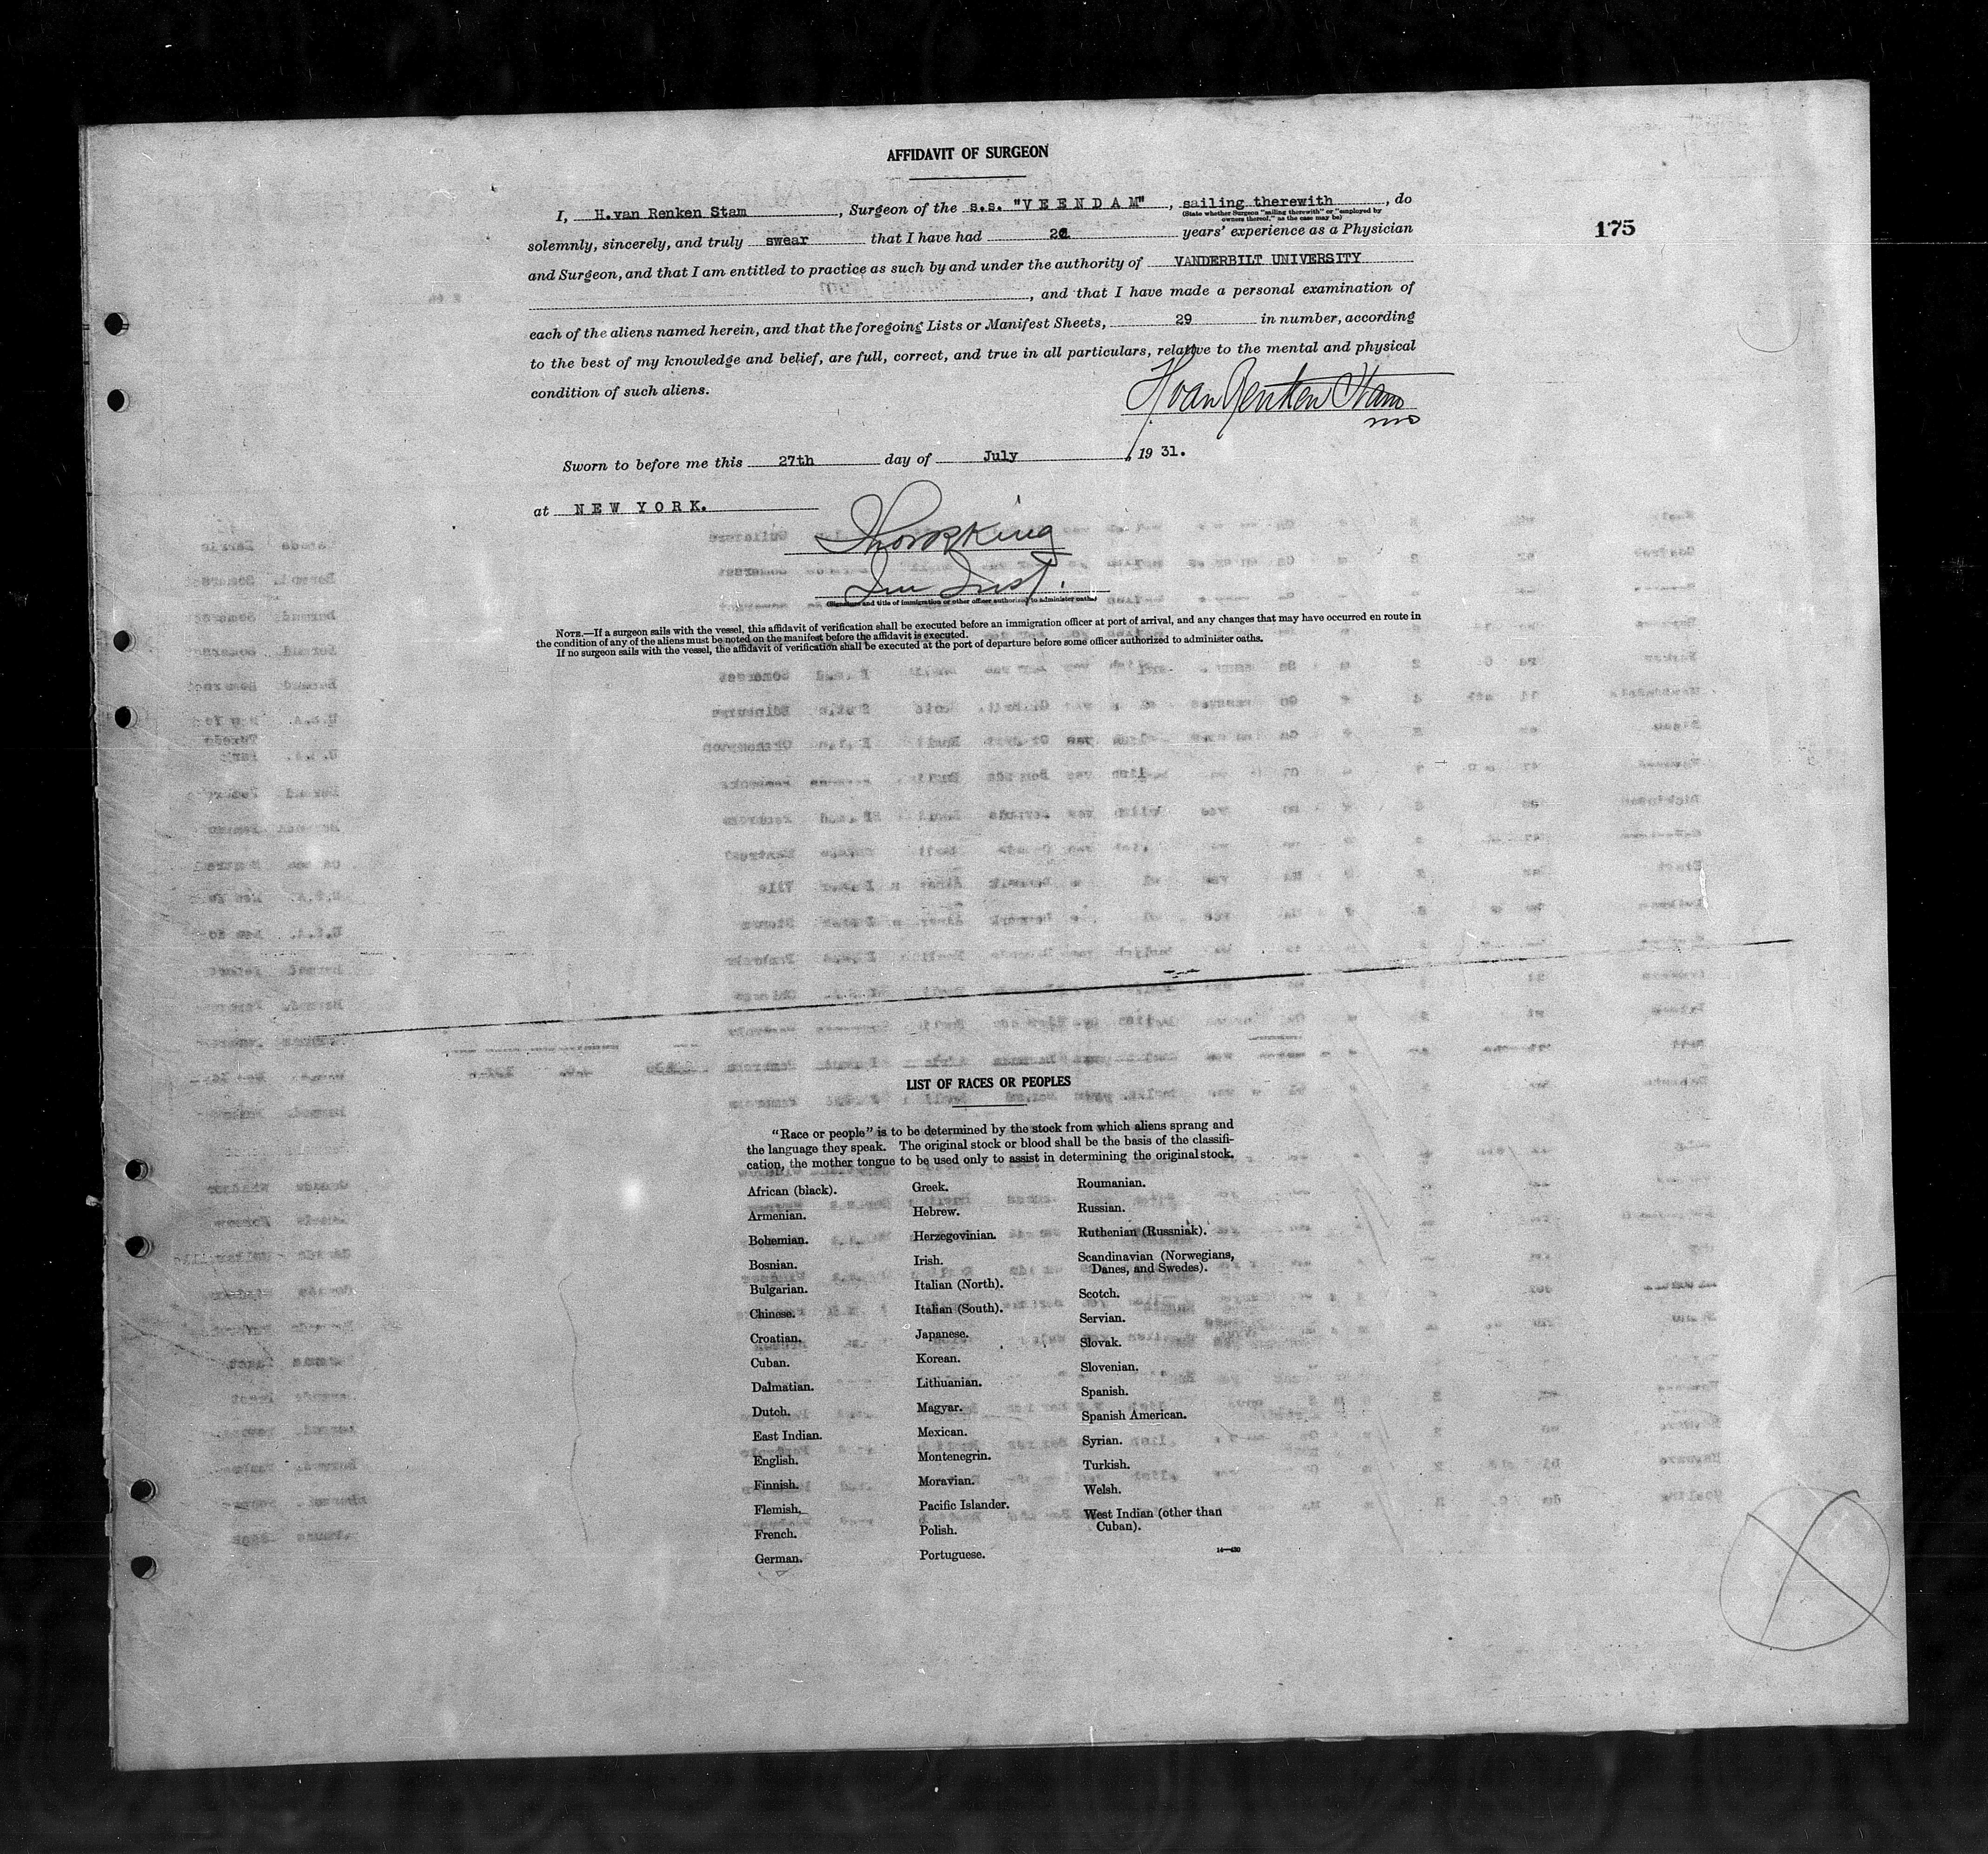 AFFIDAVIT OF SURGEON
I, H.van Renken Stam, Surgeon of the s.s. "V E E N D A M", sailing therewith, do
(State whether Surgeon "sailing therewith" or "employed by
owners thereof," as the case may be)
175
solemnly, sincerely, and truly swear that I have had years' experience as a Physician
and Surgeon, and that I am entitled to practice as such by and under the authority of VANDERBILT UNIVERSITY
, and that I have made a personal examination of
each of the aliens named herein, and that the foregoing Lists or Manifest Sheets, 29 in number, according
to the best of my knowledge and belief, are full, correct, and true in all particulars, relative to the mental and physical
condition of such aliens.
H van Renken Stam
MD
Sworn to before me this 27th day of July, 19 31.
at N E W Y O R K.
King
(Signature and title of immigration or other officer authorized to administer oaths)
NOTE.—If a surgeon sails with the vessel, this affidavit of verification shall be executed before an immigration officer at port of arrival, and any changes that may have occurred en route in
the condition of any of the aliens must be noted on the manifest before the affidavit is executed.
If no surgeon sails with the vessel, the affidavit of verification shall be executed at the port of departure before some officer authorized to administer oaths.
LIST OF RACES OR PEOPLES
"Race or people" is to be determined by the stock from which aliens sprang and
the language they speak. The original stock or blood shall be the basis of the classifi-
cation, the mother tongue to be used only to assist in determining the original stock.
African (black).
Armenian.
Bohemian.
Bosnian.
Bulgarian.
Chinese.
Croatian.
Cuban.
Dalmatian.
Dutch.
East Indian.
English.
Finnish.
Flemish.
French.
German.
Greek.
Hebrew.
Herzegovinian.
Irish.
Italian (North).
Italian (South).
Japanese.
Korean.
Lithuanian.
Magyar.
Mexican.
Montenegrin.
Moravian.
Pacific Islander.
Polish.
Portuguese.
Roumanian.
Russian.
Ruthenian (Russniak).
Scandinavian (Norwegians,
Danes, and Swedes).
Scotch.
Servian.
Slovak.
Slovenian.
Spanish.
Spanish American.
Syrian.
Turkish.
Welsh.
West Indian (other than
Cuban).